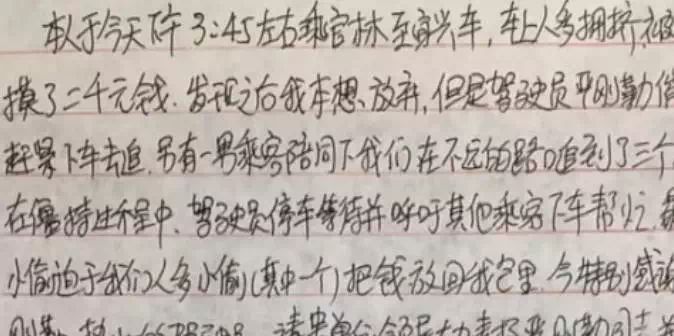 本人于今天下午3:45左右乘官林至宜兴车,车上人多拥挤被
摸了二千元钱.发现之后我本想放弃,但是驾驶员平刚勤催
赶紧下车去追.另有一男乘客陪同下我们在不远的路口追到了三个
在僵持过程中.驾驶员停车等待并呼吁其他乘客下车帮忙.最
小偷迫于我们人多小偷(其中一个)把钱放回我包里.今特别感谢